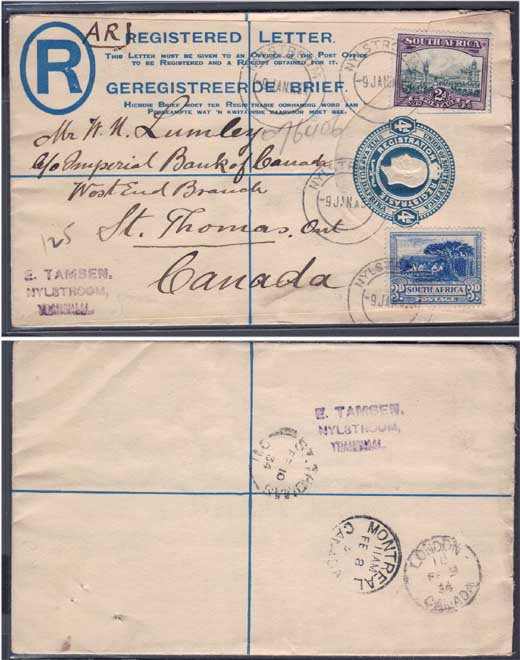 R
AR
REGISTERED LETTER.
THIS LETTER MUST BE GIVEN TO AN OFFICER OF THE POST OFFICE
TO BE REGISTERED AND A RECEIPT OBTAINED FOR IT.
GEREGISTREERDE BRIEF.
HIERDIE BRIEF MOET TER REGISTRASIE OORHANDIG WORD AAN
POSKAMPTE WAT 'N KWITANSIE DAARVOOR MOET GEE.
SOUTH AFRICA
2D
POSTAGE
NYLSTROOM
-9 JAN
Mr W. H. Lumley
c/o Imperial Bank of Canada
West End Branch
St. Thomas, Ont
Canada
125
4D
REGISTRATION
REGISTRASIE
4D
NYLSTROOM
-9 JAN
SOUTH AFRICA
3D 3D
POSTAGE
NYLSTROOM
-9 JAN
E. TAMSEN.
NYLSTROOM,
TRANSVAAL.
E. TAMSEN.
NYLSTROOM,
TRANSVAAL.
ST. THOMAS
FE 10
34
ONT
MONTREAL
11 AM
FE 8
CANADA
LONDON
FE 9
34
CANADA